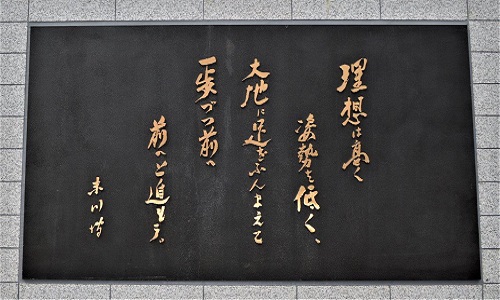 理想は高く
姿勢を低く、
大地に足をふんまえて
一歩づつ前へ
前へと進もう。
末川博